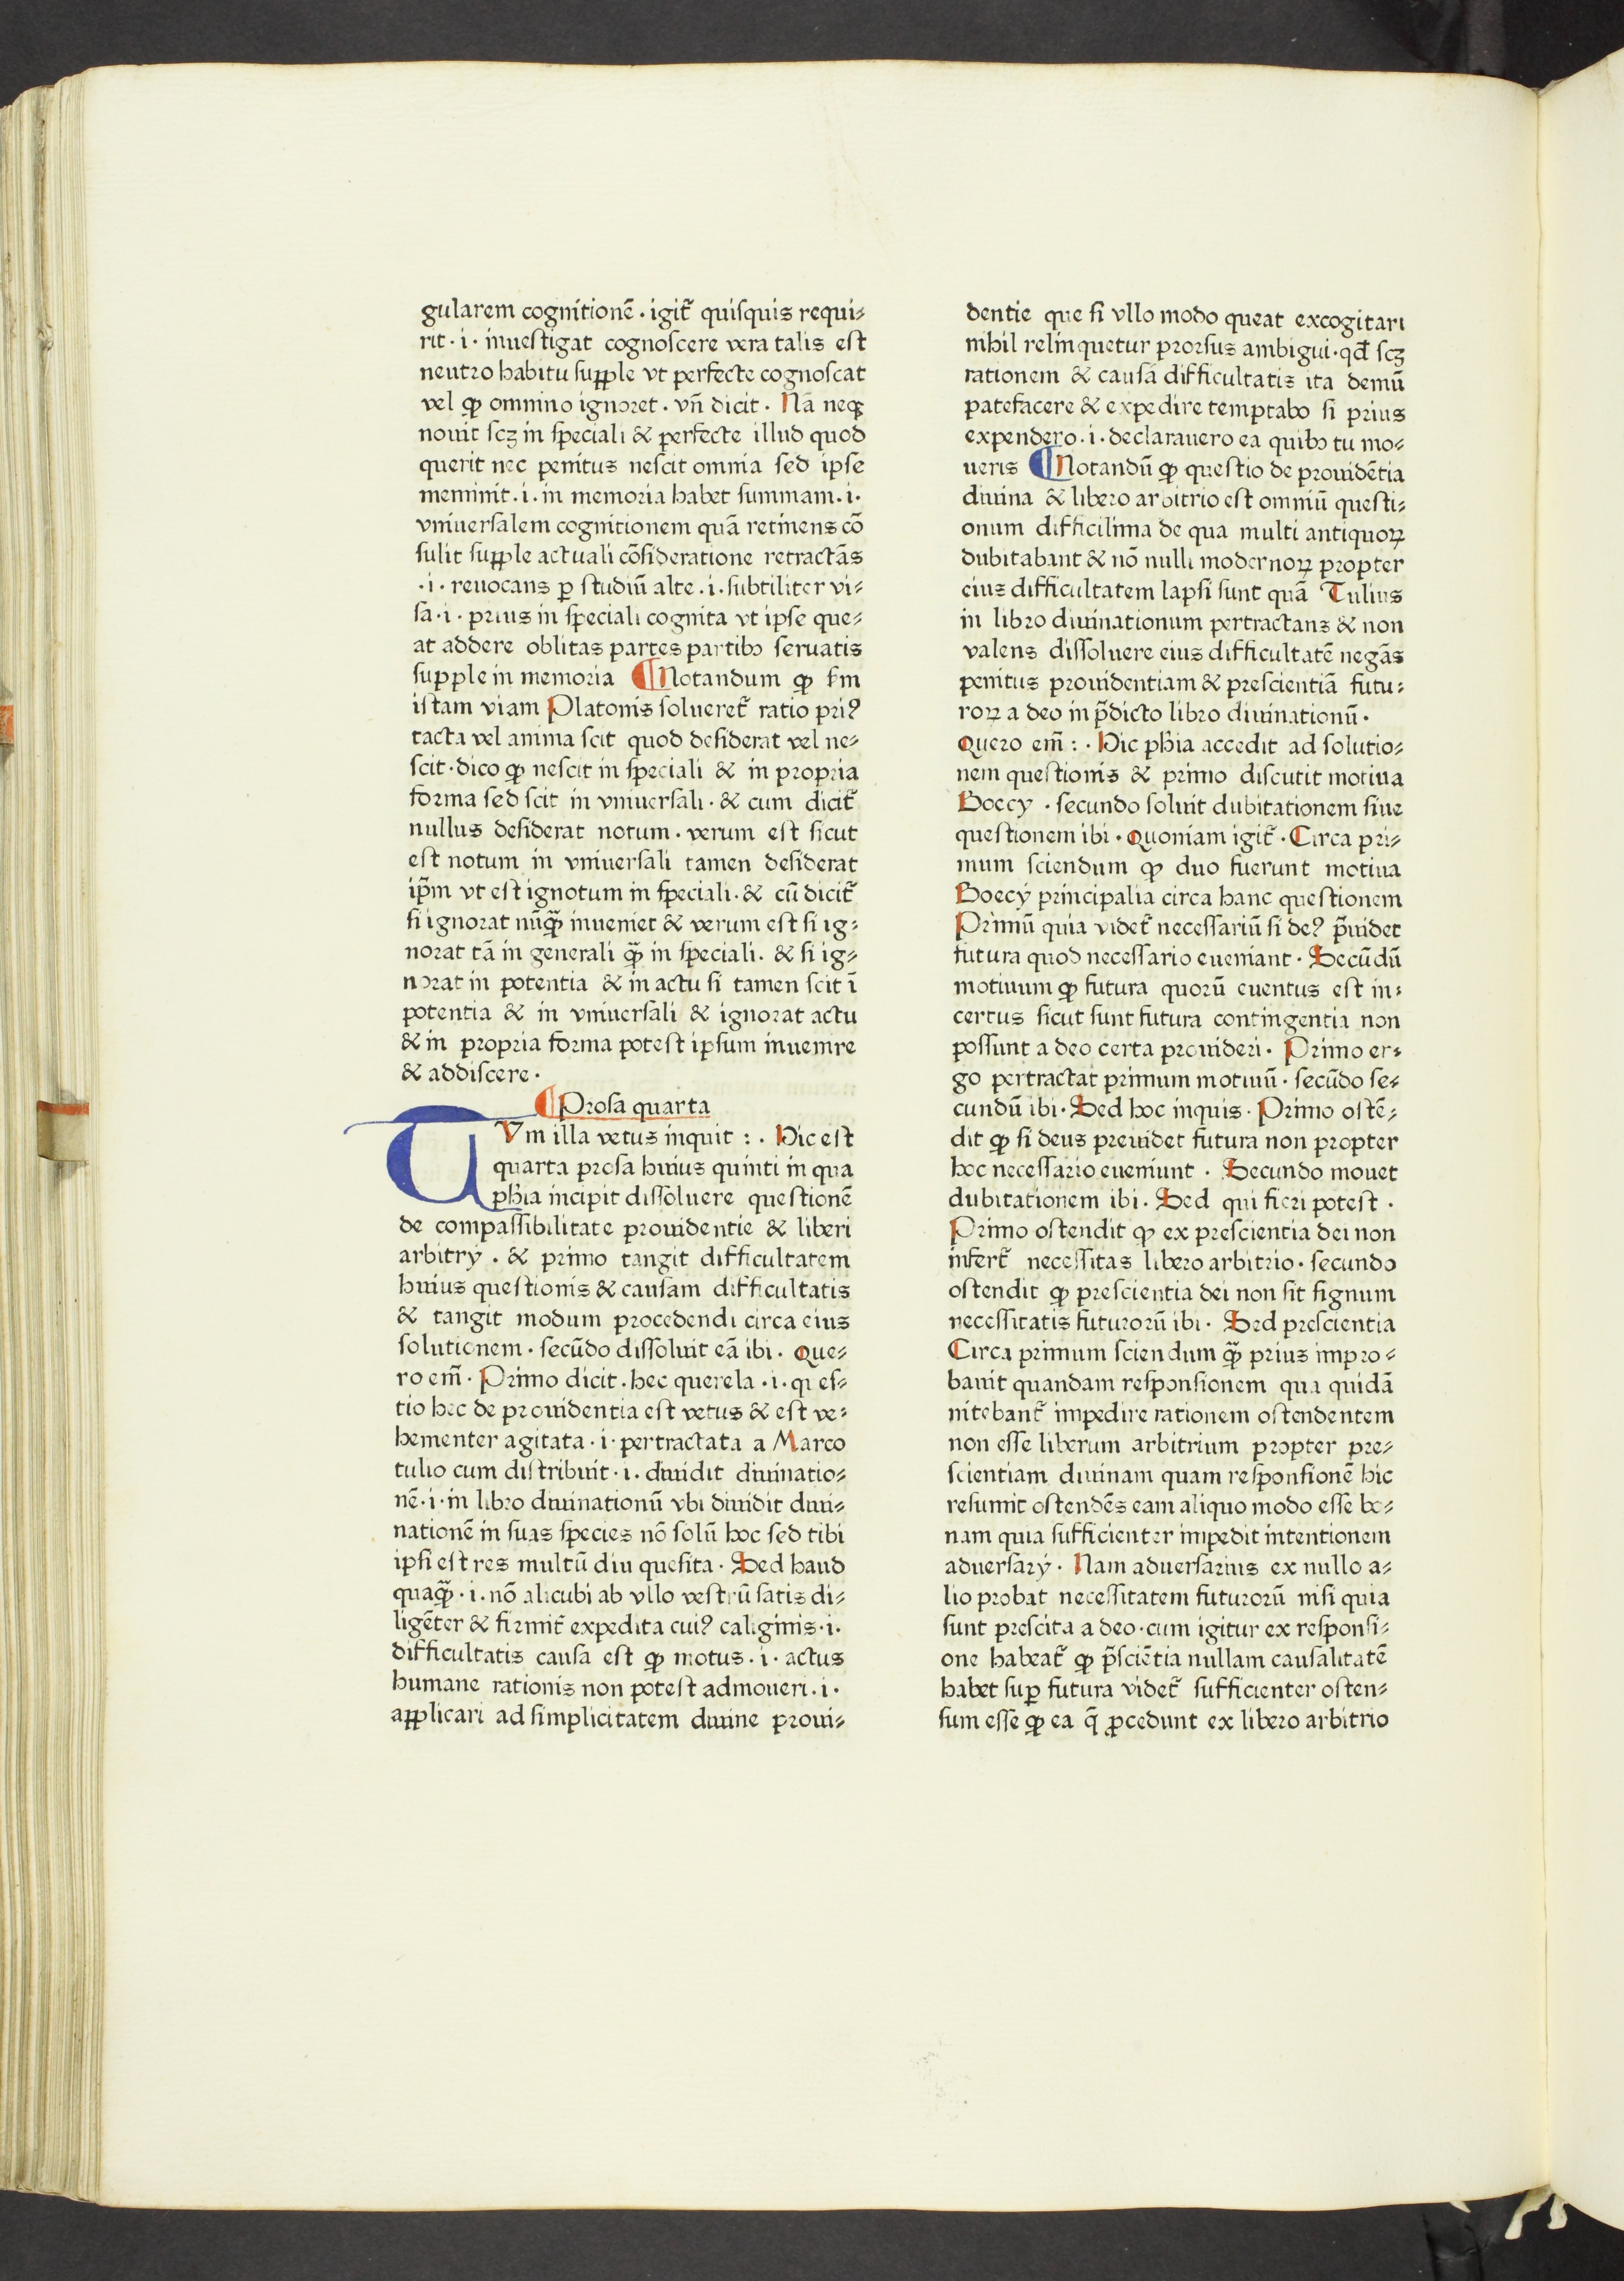 gularem cognitionē · igit᷑ quiſquis requi⸗
rit · i · inueſtigat cognoſcere vera talis eſt
neutro habitu suꝑple vt perfecte cognoſcat
vel ꝙ omnino ignoret · vn̄ dicit · Nā neqꝫ
nouit ſcꝫ in ſpeciali & perfecte illud quod
querit nec penitus neſcit omnia sed ipſe
meminit · i · in memoria habet ſummam · i ·
vniuerſalem cognitionem quā retinens cō
ſulit ſuꝑple actuali cōſideratione retractās
· i · reuocans ꝑ ſtudiū alte · i · ſubtiliter vi⸗
ſa · i · prius in ſpeciali cognita vt ipſe que⸗
at addere oblitas partes partibꝰ ſeruatis
ſupple in memoria ¶ Notandum ꝙ ẜm
iſtam viam Platonis ſolueret᷑ ratio priꝰ
tacta vel anima ſcit quod deſiderat vel ne⸗
ſcit · dico ꝙ neſcit in ſpeciali & in propria
forma ſed ſcit in vniuerſali · & cum dicit᷑
nullus deſiderat notum · verum eſt ſicut
eſt notum in vniuerſali tamen deſiderat
ip̄m vt eſt ignotum in ſpeciali · & cū dicit᷑
ſi ignorat nūꝙ̄ inueniet & verum eſt ſi ig⸗
norat tā in generali ꝙ̄ in ſpeciali · & ſi ig⸗
norat in potentia & in actu ſi tamen ſcit ī
potentia & in vniuerſali & ignorat actu
& in propria forma poteſt ipſum inuenire
& addiſcere ·
¶ Proſa quarta
TVm illa vetus inquit : · Hic eſt
quarta proſa huius quinti in qua
ph̄ia incipit diſſoluere queſtionē
de compaſſibilitate prouidentie & liberi
arbitrÿ · & primo tangit difficultatem
huius queſtionis & cauſam difficultatis
& tangit modum procedendi circa eius
ſolutionem · ſecūdo diſſoluit eā ibi · Que⸗
ro em̄ · Primo dicit · hec querela · i · queſ⸗
tio hec de prouidentia eſt vetus & eſt ve⸗
hementer agitata · i · pertractata a Marco
tulio cum diſtribuit · i · diuidit diuinatio⸗
nē · i · in libro diuinationū vbi diuidit diui⸗
nationē in ſuas ſpecies nō ſolū hoc ſed tibi
ipſi eſt res multū diu queſita · Sed haud
quaꝙ̄ · i · nō alicubi ab vllo veſtrū ſatis di⸗
ligēter & firmit᷑ expedita cuiꝰ caliginis · i ·
difficultatis cauſa eſt ꝙ motus · i · actus
humane rationis non poteſt admoueri · i ·
aꝑplicari ad ſimplicitatem diuine proui⸗
dentie que ſi vllo modo queat excogitari
nihil relinquetur prorſus ambigui · qd̄ ſcꝫ
rationem & cauſā difficultatis ita demū
patefacere & expedire temptabo ſi prius
expendero · i · declarauero ea quibꝰ tu mo⸗
ueris ¶ Notandū ꝙ queſtio de prouidētia
diuina & libero arbitrio eſt omniū queſti⸗
onum difficilima de qua multi antiquoꝝ
dubitabant & nō nulli modernoꝝ propter
eius difficultatem lapſi ſunt quā Tulius
in libro diuinationum pertractans & non
valens diſſoluere eius difficultatē negās
penitus prouidentiam & preſcientiā futu⸗
roꝝ a deo in p̄dicto libro diuinationū ·
Quero em̄ : · Hic ph̄ia accedit ad ſolutio⸗
nem queſtionis & primo diſcutit motiua
Boecÿ · ſecundo ſoluit dubitationem ſiue
queſtionem ibi · Quoniam igit᷑ · Circa pri⸗
mum ſciendum ꝙ duo fuerunt motiua
Boecÿ principalia circa hanc queſtionem
Primū quia videt᷑ neceſſariū ſi deꝰ p̄uidet
futura quod neceſſario eueniant · Secūdū
motiuum ꝙ futura quorū euentus eſt in⸗
certus ſicut ſunt futura contingentia non
poſſunt a deo certa prouideri · Primo er⸗
go pertractat primum motiuū · ſecūdo ſe⸗
cundū ibi · Sed hoc inquis · Primo oſtē⸗
dit ꝙ ſi deus preuidet futura non propter
hoc neceſſario eueniunt · Secundo mouet
dubitationem ibi · Sed qui fieri poteſt ·
Primo oſtendit ꝙ ex preſcientia dei non
infert᷑ neceſſitas libero arbitrio · ſecundo
oſtendit ꝙ preſcientia dei non ſit ſignum
neceſſitatis futurorū ibi · Sed preſcientia
Circa primum ſciendum ꝙ̄ prius impro⸗
bauit quandam reſponſionem qua quidā
nitebant᷑ impedire rationem oſtendentem
non eſſe liberum arbitrium propter pre⸗
ſcientiam diuinam quam reſponſionē hic
reſumit oſtendēs eam aliquo modo eſſe bo⸗
nam quia ſufficienter impedit intentionem
aduerſarÿ · Nam aduerſarius ex nullo a⸗
lio probat neceſſitatem futurorū niſi quia
ſunt preſcita a deo · cum igitur ex reſponſi⸗
one habeat᷑ ꝙ p̄ſciētia nullam cauſalitatē
habet ſuꝑ futura videt᷑ ſufficienter oſten⸗
ſum eſſe ꝙ ea q̄ ꝓcedunt ex libero arbitrio